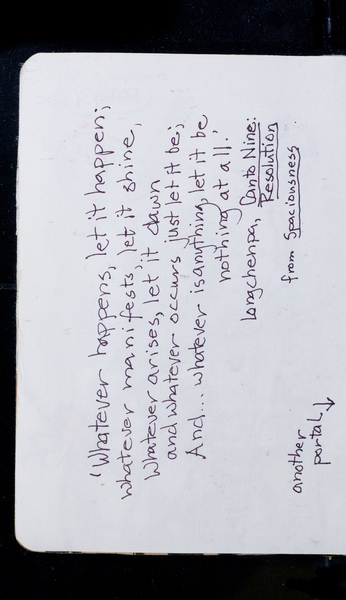 'Whatever happens, let it happen;
whatever manifests, let it shine,
Whatever arises, let it dawn
and whatever occurs just let it be;
And... whatever is anything, let it be
nothing at all.'
Longchenpa, Canto Nine:
Resolution
from Spaciousness.
another
portal ↓